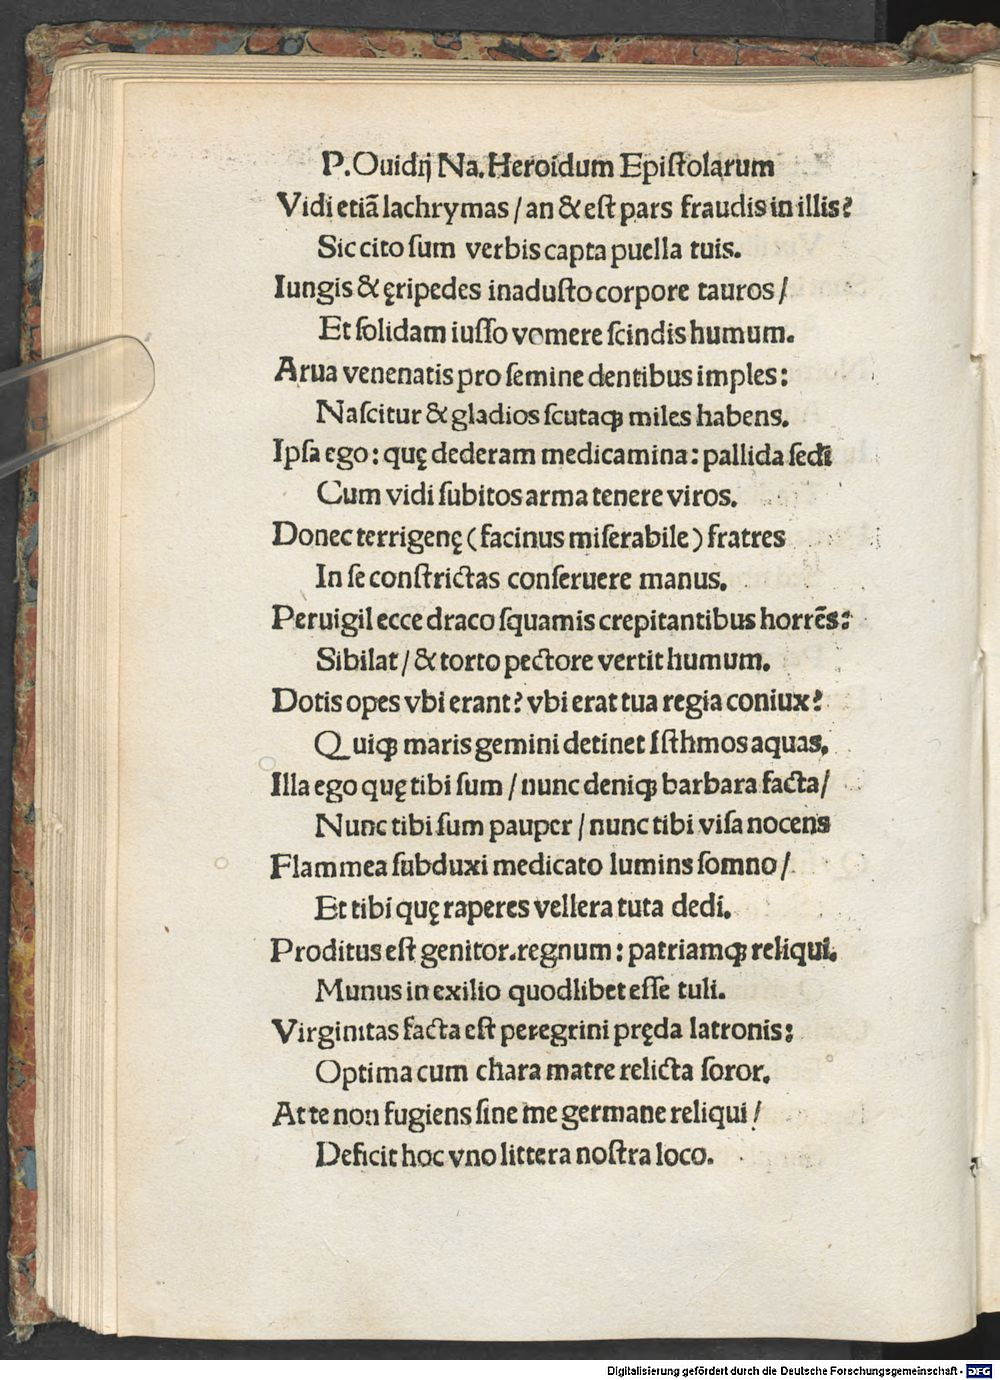 P.Ouidij Na.Heroidum Epiſtolarum
Vidi etiã lachrymas / an & eſt pars fraudis in illis?
Sic cito ſum verbis capta puella tuis.
Iungis & ęripedes inaduſto corpore tauros /
Et ſolidam iuſſo vomere ſcindis humum.
Arua venenatis pro ſemine dentibus imples:
Naſcitur & gladios ſcutaqꝫ miles habens.
Ipſa ego: quę dederam medicamina: pallida ſedi
Cum vidi ſubitos arma tenere viros.
Donec terrigenę (facinus miſerabile) fratres
In ſe conſtrictas conſeruere manus.
Peruigil ecce draco ſquamis crepitantibus horrẽs:
Sibilat / & torto pectore vertit humum.
Dotis opes vbi erant? vbi erat tua regia coniux?
Quiqꝫ maris gemini detinet Iſthmos aquas.
Illa ego quę tibi ſum / nunc deniqꝫ barbara facta /
Nunc tibi ſum pauper / nunc tibi viſa nocens
Flammea ſubduxi medicato lumins ſomno /
Et tibi quę raperes vellera tuta dedi.
Proditus eſt genitor.regnum: patriamqꝫ reliqui.
Munus in exilio quodlibet eſſe tuli.
Virginitas facta eſt peregrini pręda latronis:
Optima cum chara matre relicta ſoror.
At te non fugiens ſine me germane reliqui /
Deficit hoc vno littera noſtra loco.
Digitalisierung gefördert durch die Deutsche Forschungsgemeinschaft - DFG